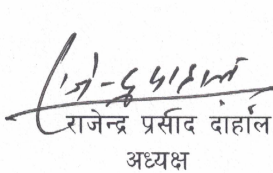 राजेन्द्र प्रसाद दाहाल
अध्यक्ष